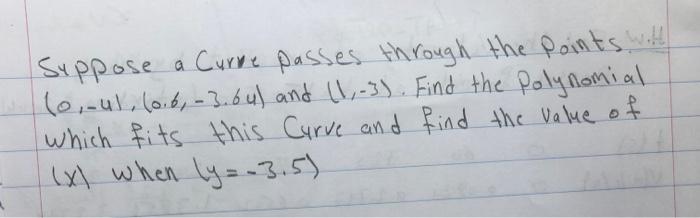 Suppose a Curve passes through the points
(0,-4), (0.6, -3.64) and (1,-3). Find the Polynomial
which fits this Curve and find the value of
(x) when (y=-3.5)